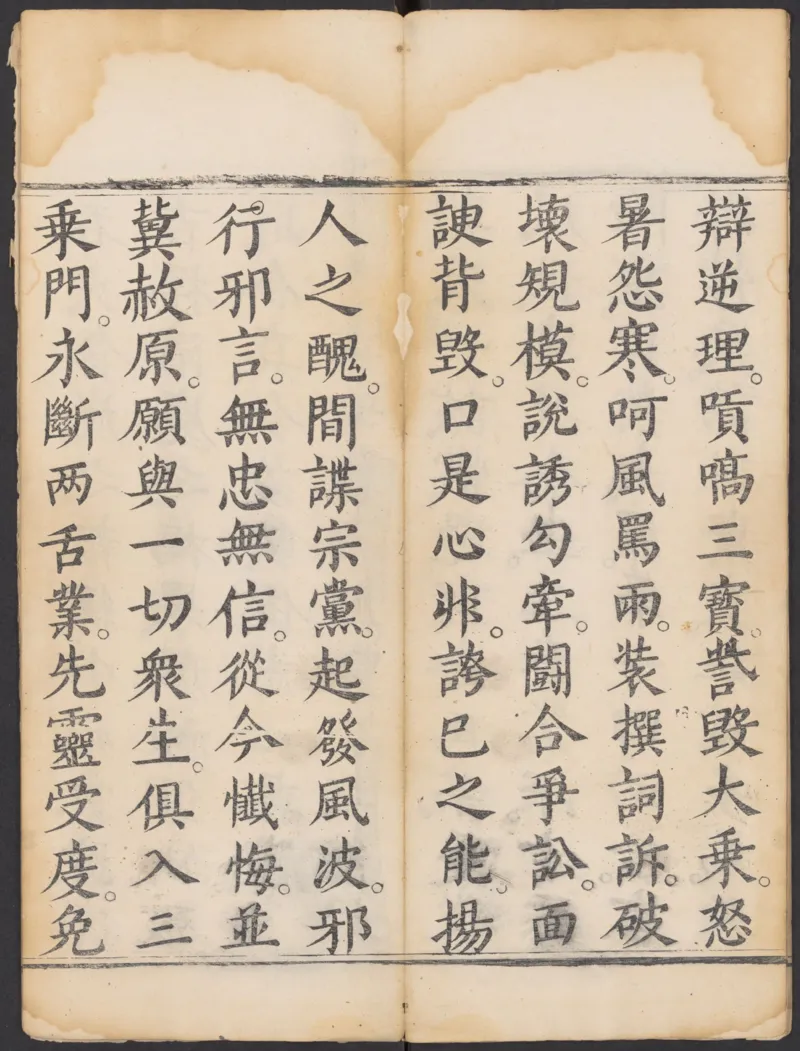 辯逆理。嗊嗃三寳。訾毀大乗。怒
暑怨寒。呵風罵雨。装撰詞訴。破
壞規模。說誘勾牽。鬪合爭訟。面
諛背毀。口是心非。誇已之能。揚
人之醜。間諜宗黨。起發風波。邪
行邪言。無忠無信。從今懺悔。並
冀赦原。願與一切衆生。俱入三
乗門。永斷两舌業。先靈受度。免